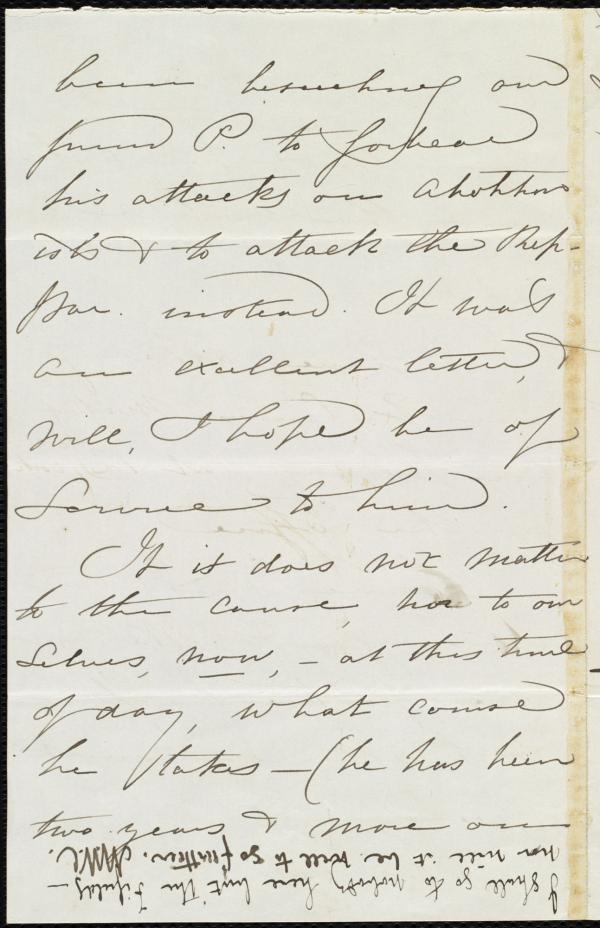 been beseeching our
friend P. to forbear
his attacks on Abolition
ists & to attack the Rep-
par. instead. It was
an excellent letter, &
will, I hope be of
service to him.
It it does not matter
to the cause, nor to our
selves, now, - at this time
of day, what course
he takes - (he has been
two years & more our
I shall go to nobody here but the Fifields -
nor will it be well to go further. MWC.